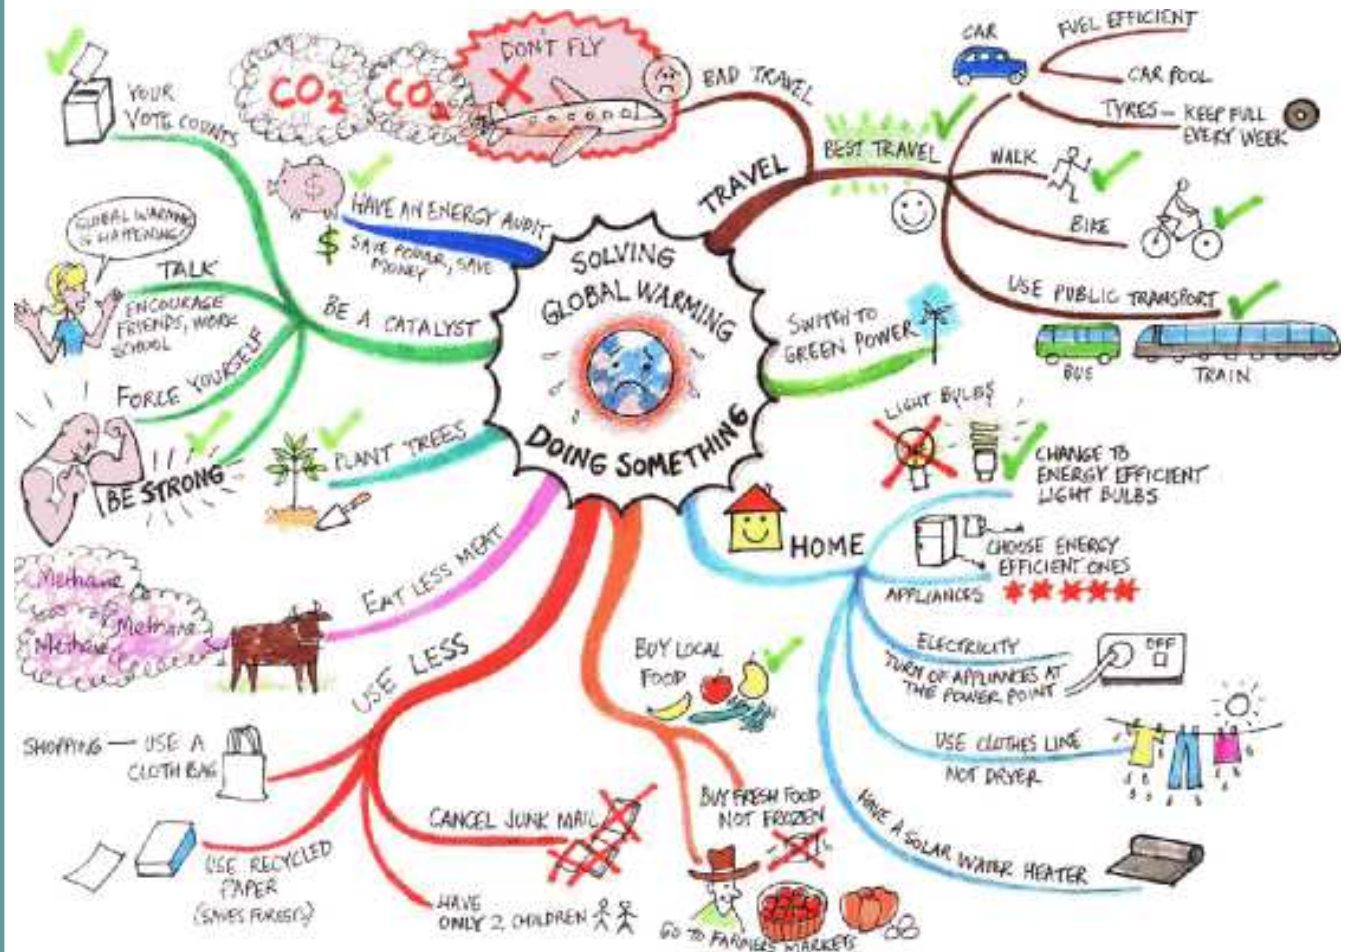 SOLVING
GLOBAL WARMING
DOING SOMETHING
TRAVEL
BAD TRAVEL
DON'T FLY
CO2
CO2
BEST TRAVEL
CAR
FUEL EFFICIENT
CAR POOL
TYRES – KEEP FULL
EVERY WEEK
WALK
BIKE
USE PUBLIC TRANSPORT
BUS
TRAIN
SWITCH TO
GREEN POWER
HOME
LIGHT BULBS
CHANGE TO
ENERGY EFFICIENT
LIGHT BULBS
CHOOSE ENERGY
EFFICIENT ONES
APPLIANCES
ELECTRICITY
TURN OF APPLIANCES AT
THE POWER POINT
OFF
USE CLOTHES LINE
NOT DRYER
HAVE A SOLAR WATER HEATER
BUY LOCAL
FOOD
BUY FRESH FOOD
NOT FROZEN
GO TO FARMERS MARKETS
USE LESS
SHOPPING — USE A
CLOTH BAG
USE RECYCLED
PAPER
(SAVES FORESTS)
CANCEL JUNK MAIL
HAVE
ONLY 2 CHILDREN
EAT LESS MEAT
Methane
Methane
Methane
PLANT TREES
BE A CATALYST
YOUR
VOTE COUNTS
GLOBAL WARMING
IS HAPPENING!
TALK
ENCOURAGE
FRIENDS, WORK
SCHOOL
FORCE YOURSELF
BE STRONG
HAVE AN ENERGY AUDIT
SAVE POWER, SAVE
MONEY
$
$